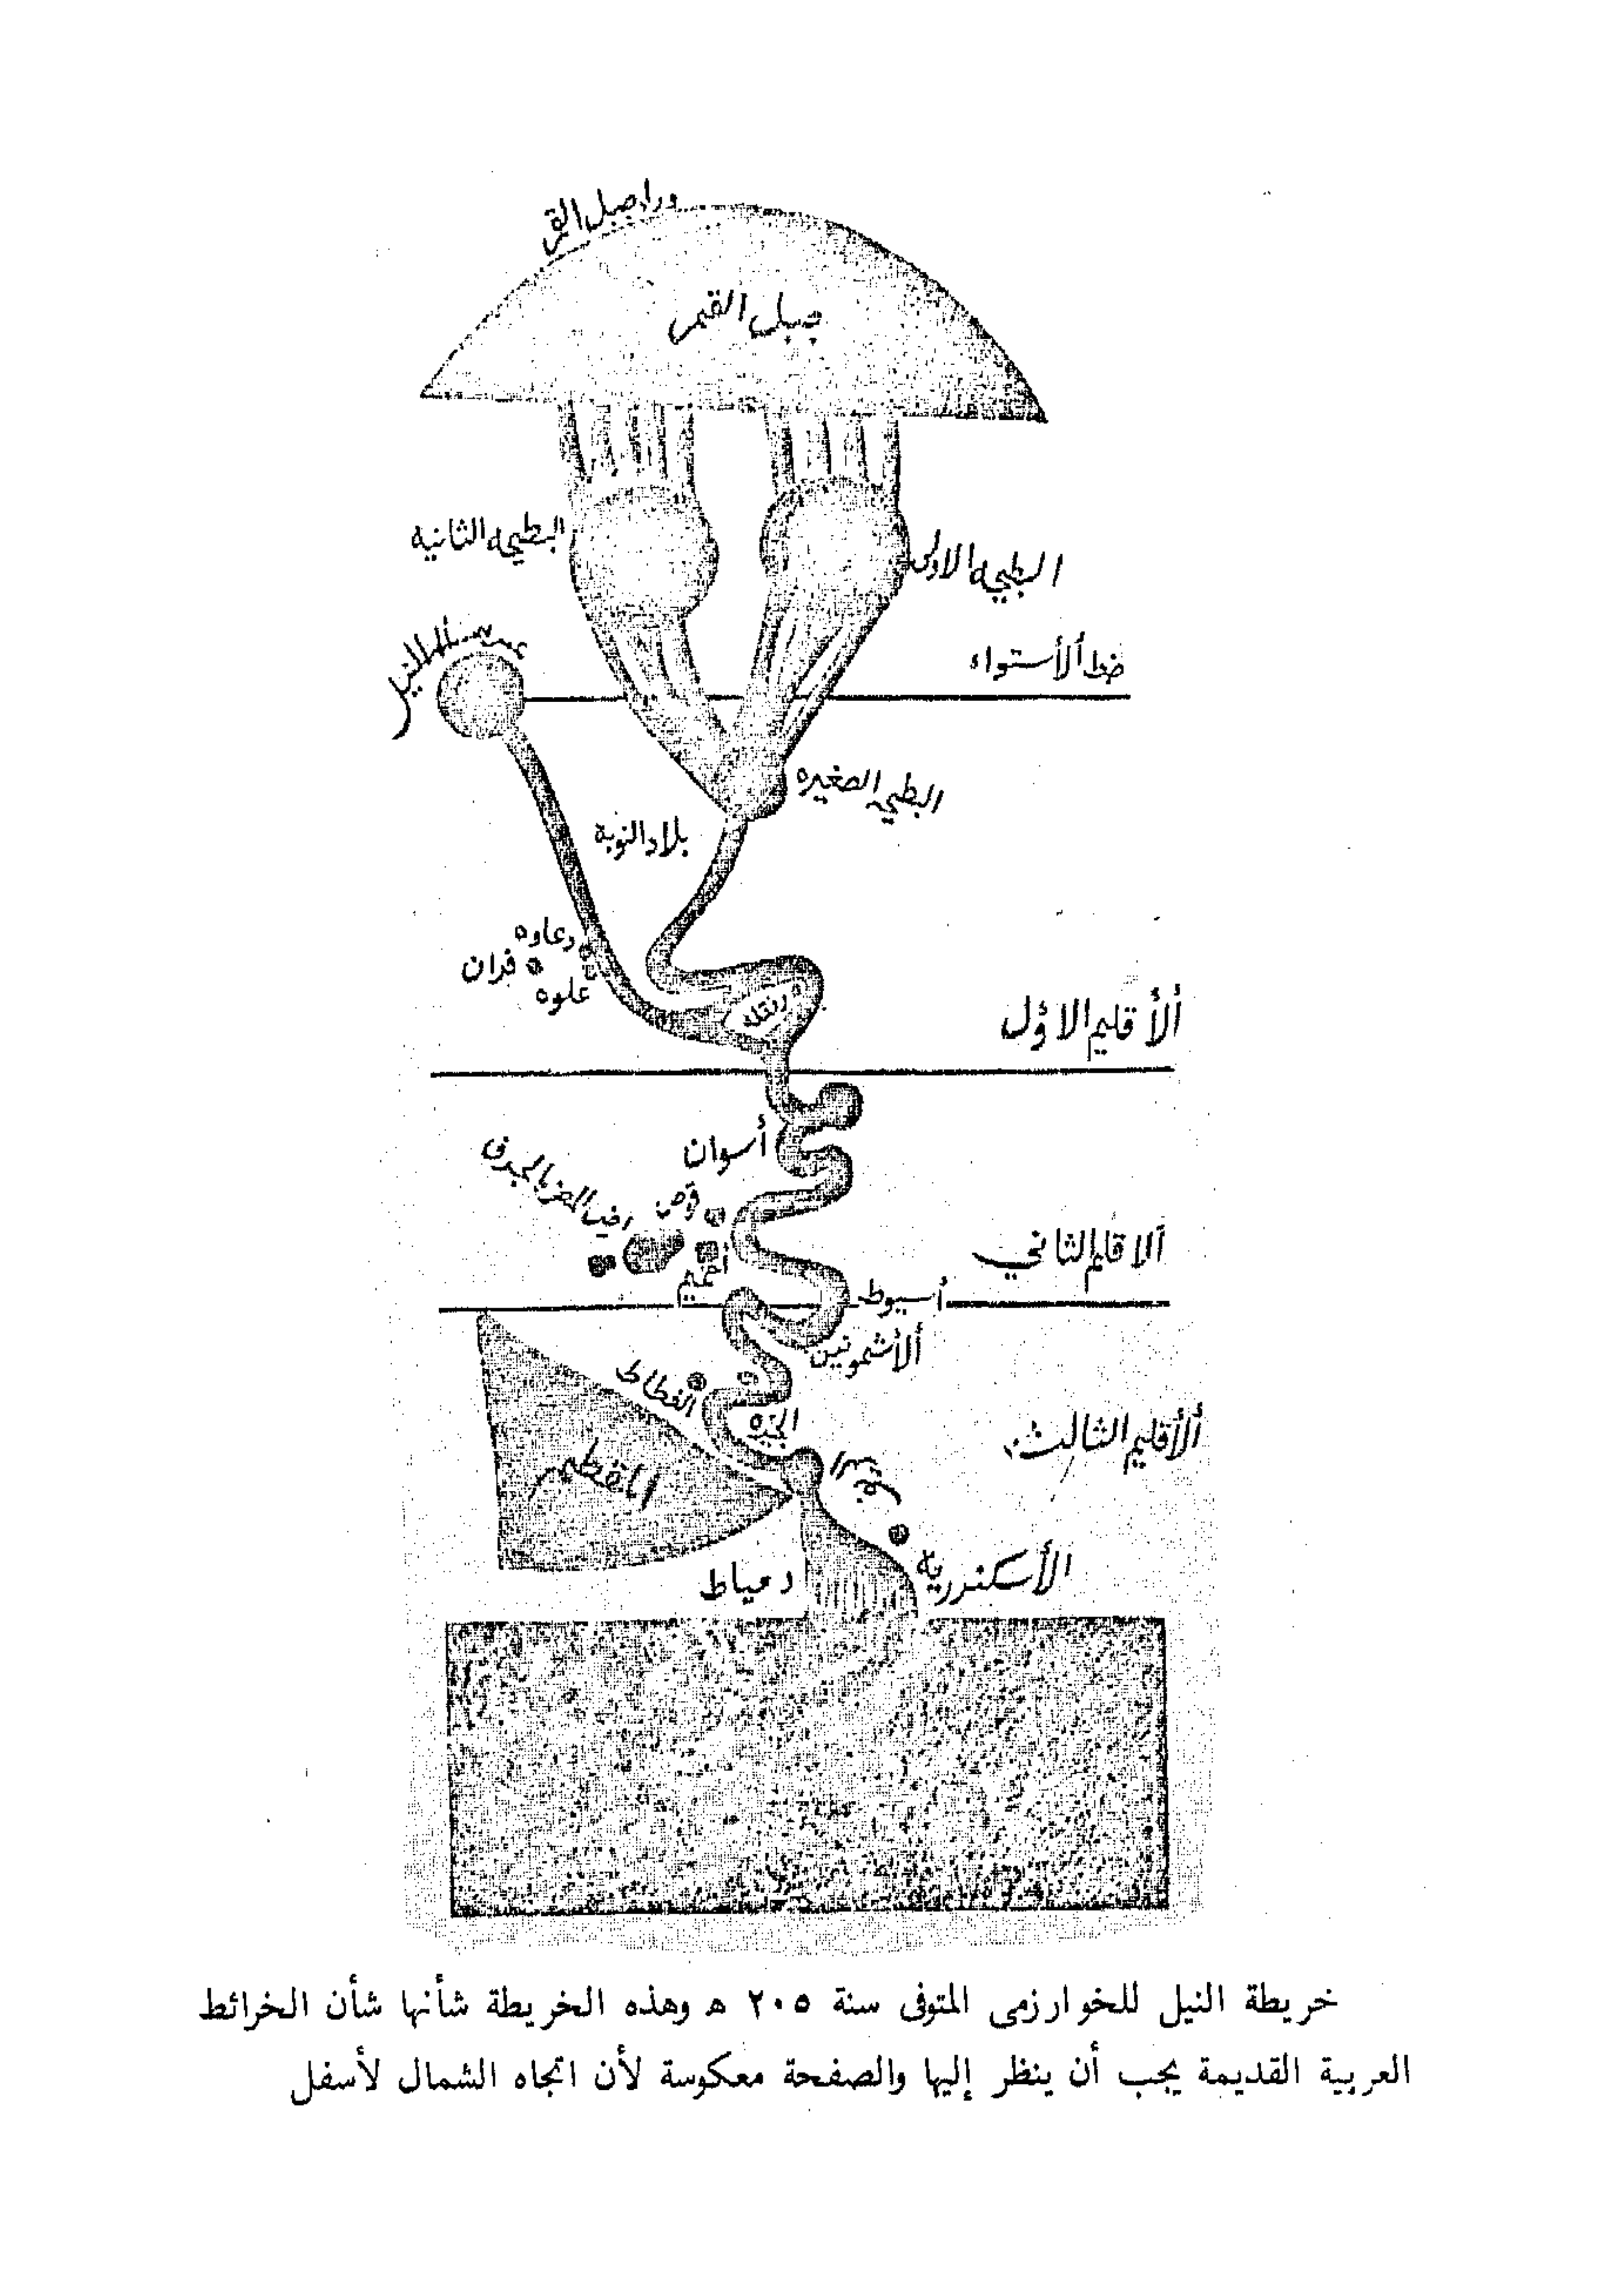 وراء جبل القمر
جبل القمر
البطيحه الثانيه
البطيحه الاولى
النيل
خط ألأستواء
البطيحه الصغيره
بلاد النوبة
دعاوه
فزان
علوه
دنقله
ألأقليم الاؤل
أسوان
قوص
ألاقليم الثاني
أخميم
أسيوط
ألأشمونين
الفسطاط
الجيزه
ألأقليم الثالث
المقطم
الأسكندرية
دمياط
خريطة النيل للخوارزمى المتوفى سنة ٢٠٥ ه وهذه الخريطة شأنها شأن الخرائط
العربية القديمة يجب أن ينظر إليها والصفحة معكوسة لأن اتجاه الشمال لأسفل